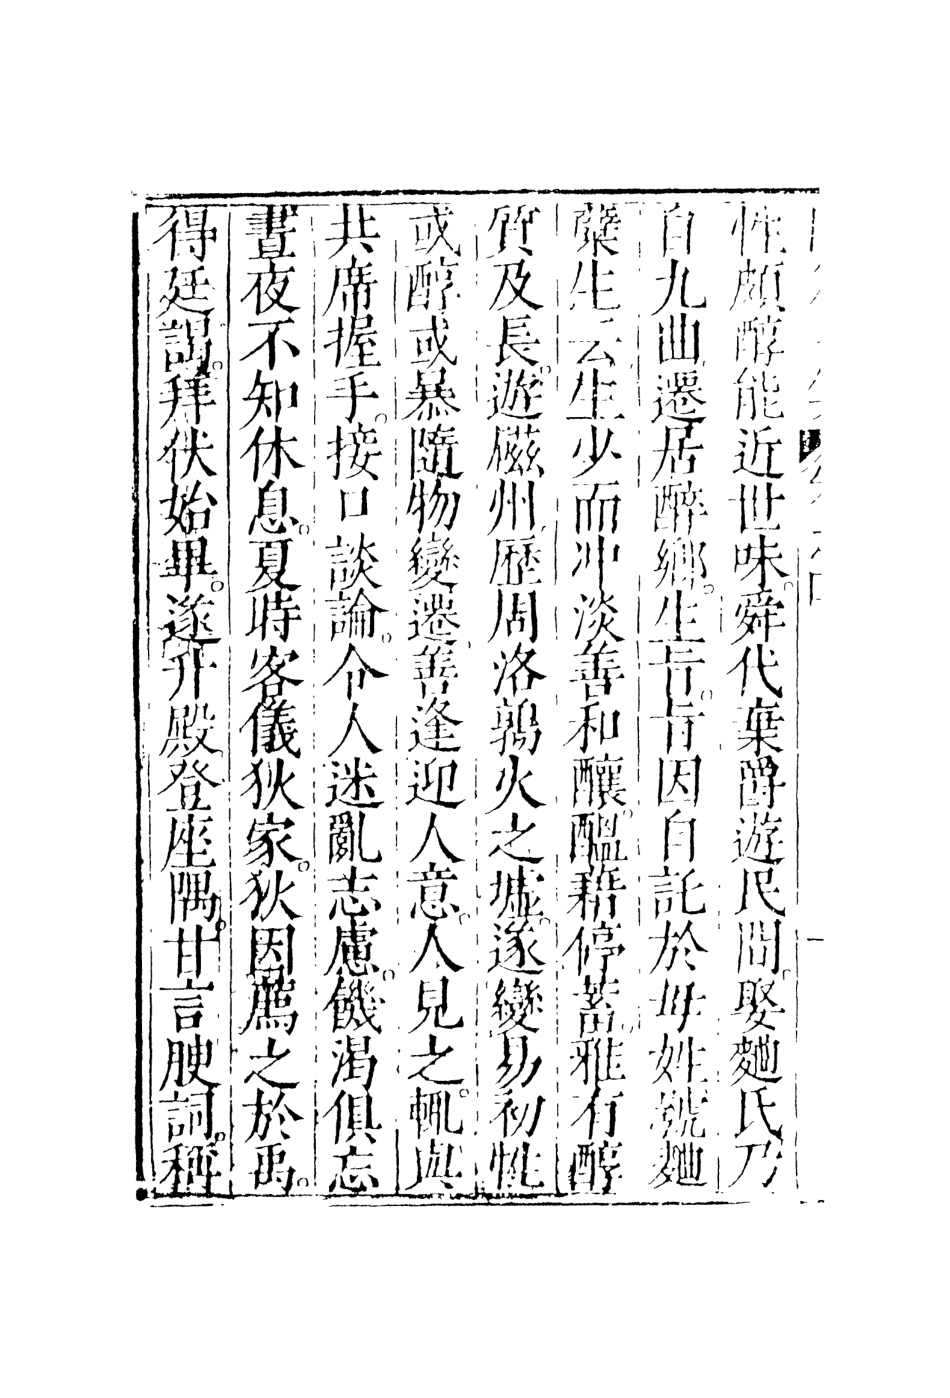 性頗醇能近世味。舜代棄爵遊民間。娶麯氏乃
自九曲遷居醉鄉。生旨。旨因自託於母姓號麯
糵生云生少而冲淡善和釀。醞藉停蓄。雅有醇
質及長。遊磁州歷周洛鶉火之墟。遂變易初性
或醇或暴隨物變遷善逢迎人意。人見之。輒與
共席握手。接口談論。令人迷亂志慮。饑渴俱忘
晝夜不知休息。夏時客儀狄家。狄因薦之於禹。
得廷謁。拜伏始畢。遂升殿登座隅。甘言腴詞。稱